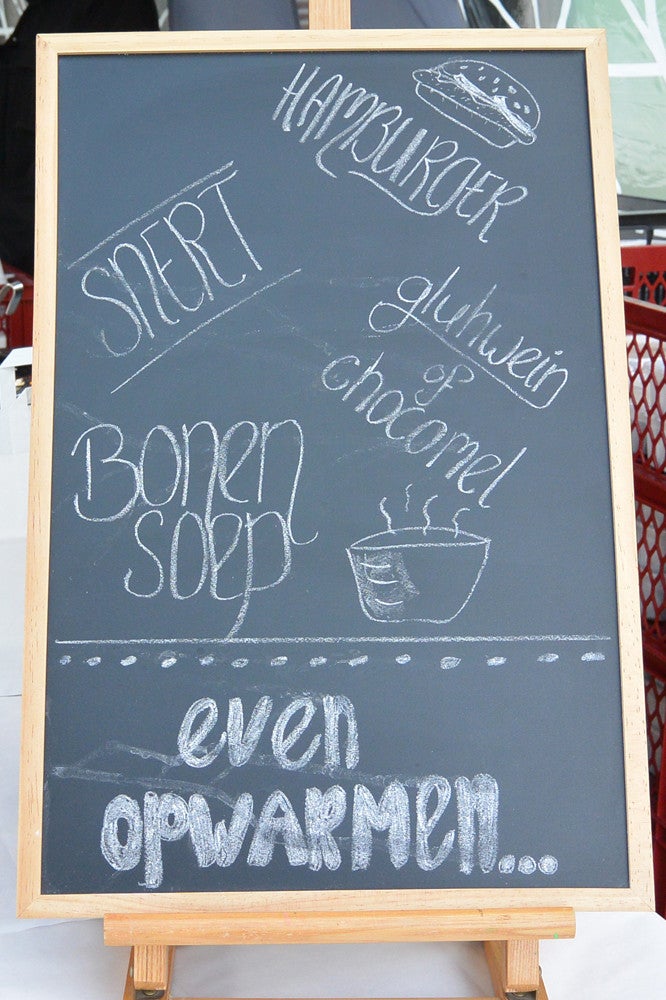 HAMBURGER
SNERT
gluhwein
of
chocomel
Bonen
soep
even
opwarmen...